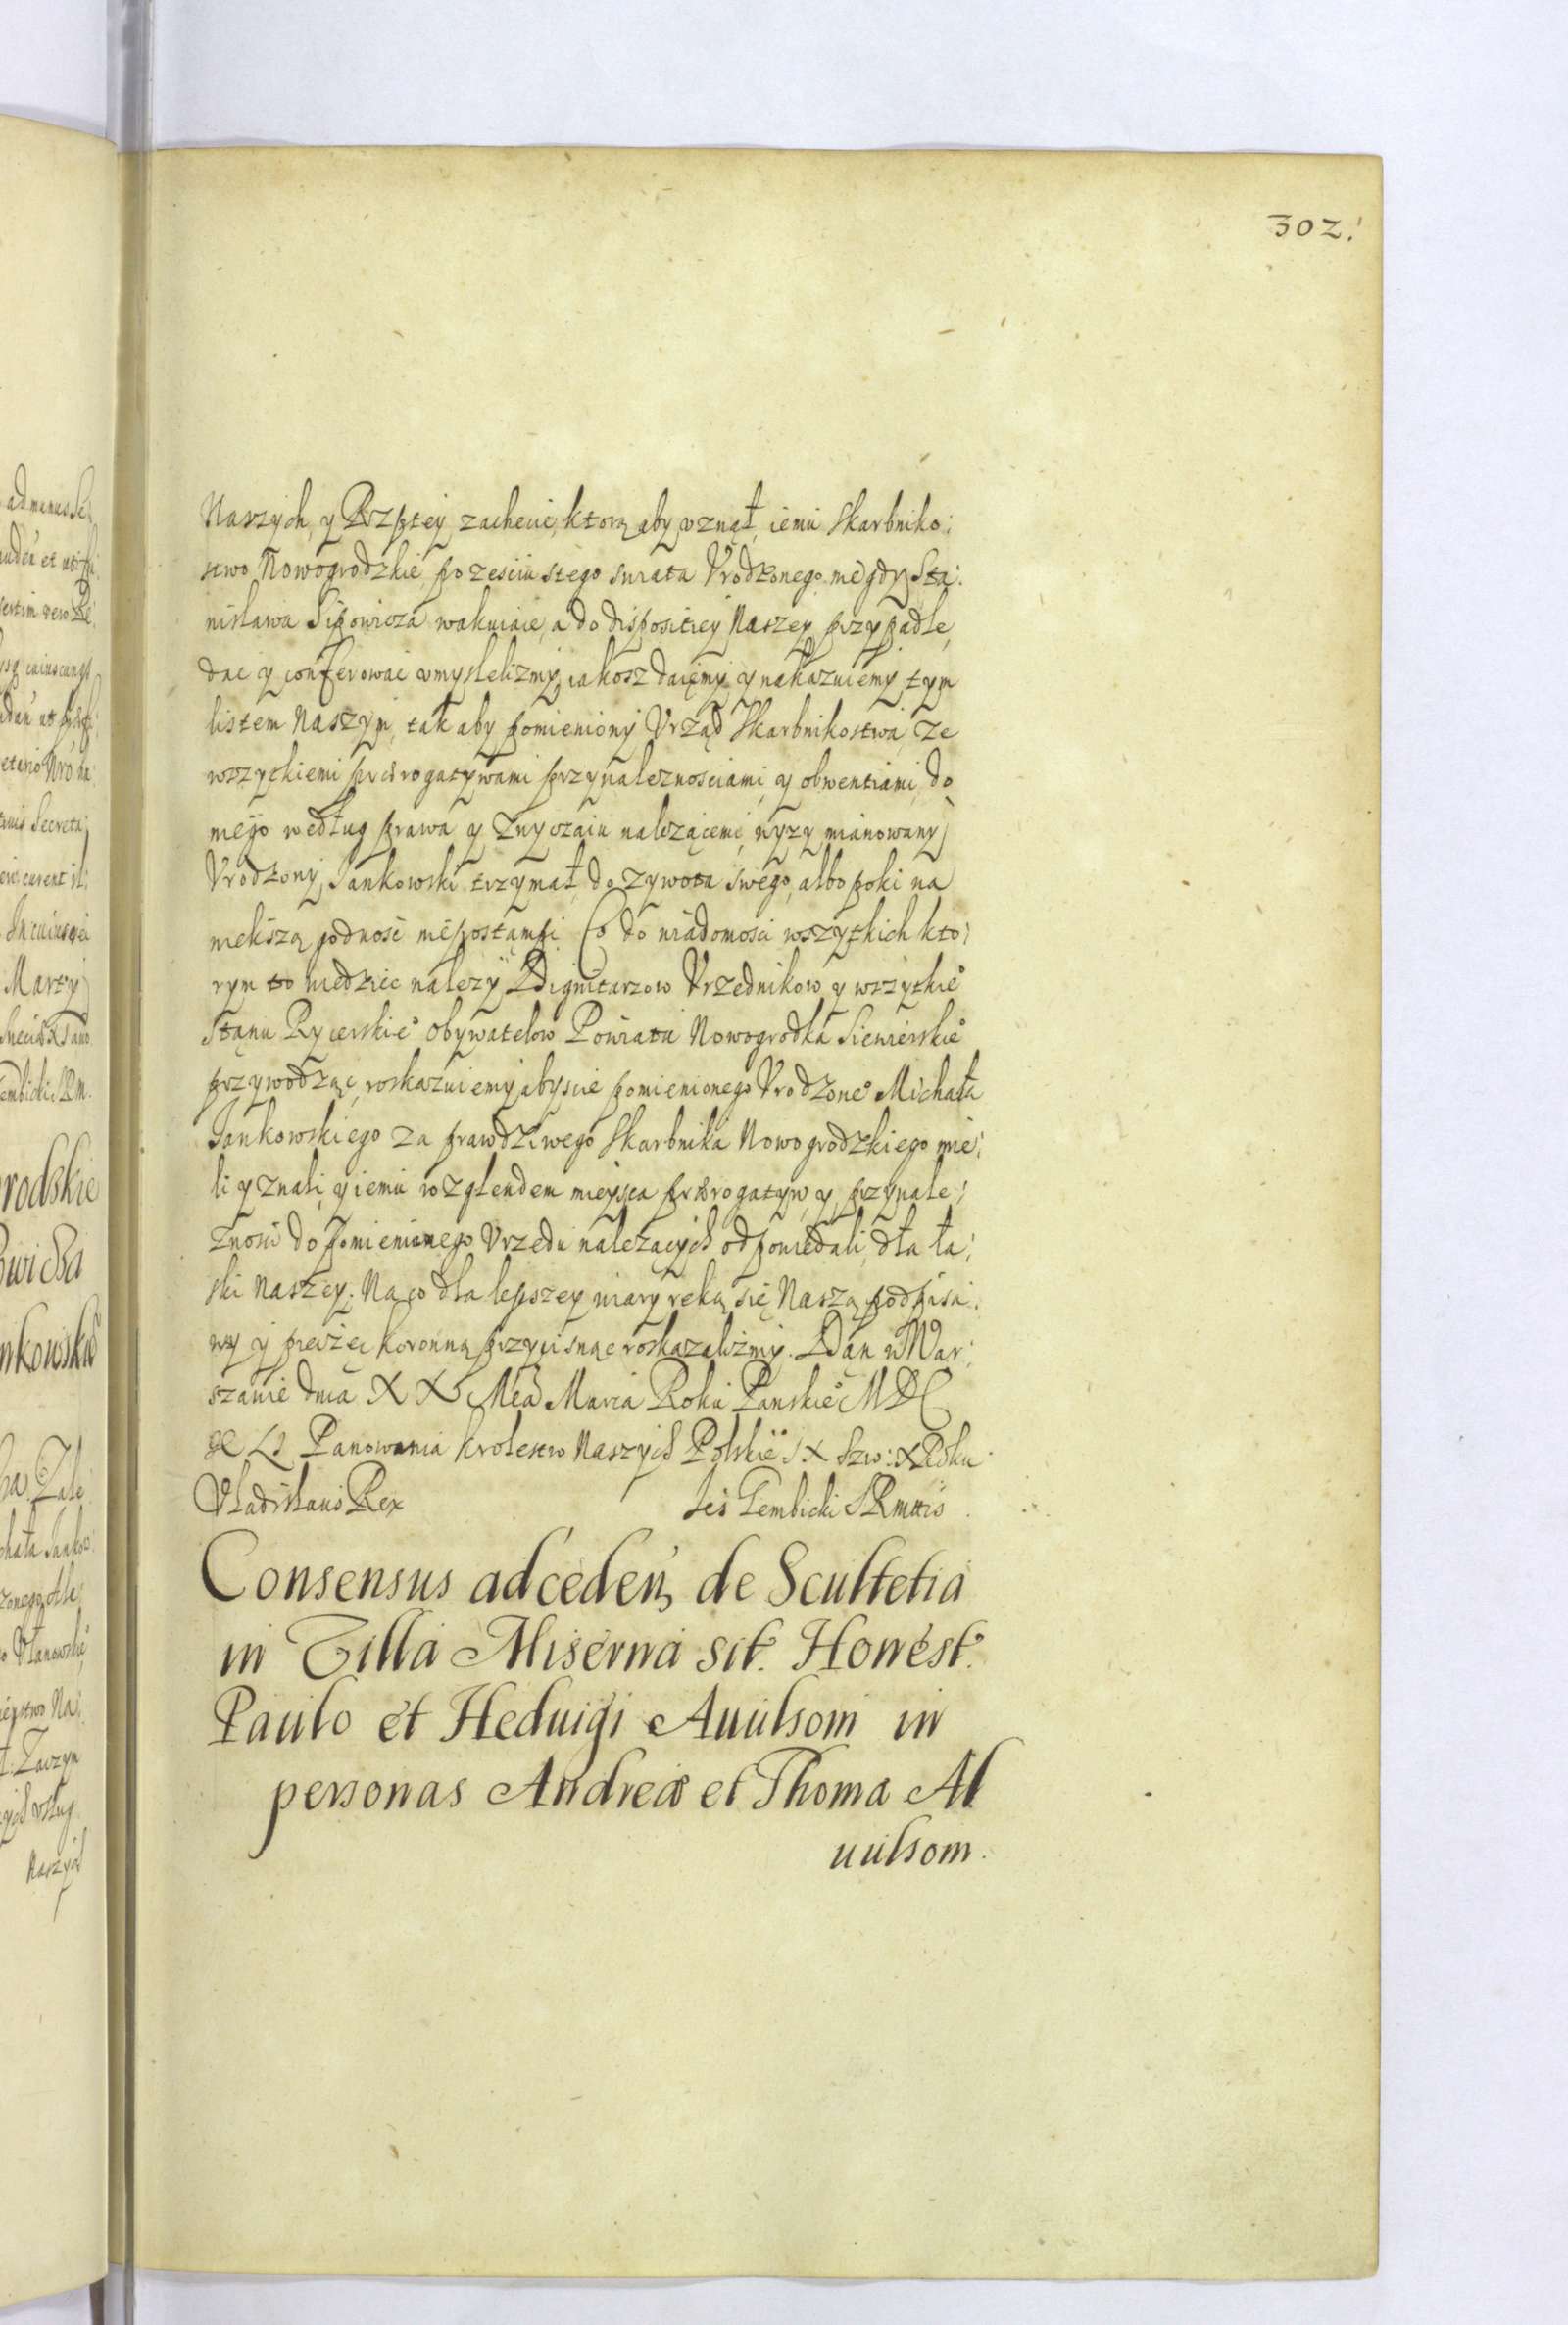 302.
Naszych, y Rzptey zachecic, ktorą aby vznał, iemu Skarbniko:
stwo Nowogrodzkie po zesciu stego swiata Vrodzonego niegdy Sta:
nisława Sipowicza wakuiące, a do dispositiey Naszey przypadłe,
dac y conferowac vmyslelizmy, iakosz daięmy y nakazuiemy tym
listem Naszym, tak aby pomieniony Vrząd Skarbnikostwa, ze
wszytkiemi prærogatywami przynaleznosciami, y obwentiami, do
niego według prawa y zwyczaiu nalezącemi, wyzy mianowany
Vrodzony Jankowski trzymał, do zywota swego, albo poki na
wieksza godnosc niepostąmpi. Co do wiadomosci wszytkich kto:
rym to wiedziec nalezy Dignitarzow Vrzednikow y wszytkie°
Stanu Rycerskie° obywatelow Powiatu Nowogrodka Siewierskie°
przywodząc, roskazuiemy abyscie pomienionego Vrodzone° Michała
Jankowskiego za prawdziwego Skarbnika Nowogrodzkiego mie:
li y znali, y iemu wzglendem mieysca prærogatyw, y przynale:
znosci do pomienionego Vrzedu nalezących odpowiedali, dla ła:
ski Naszey. Na co dla lepszey wiary reką się Naszą podpisa:
wszy y pieczęc koronną przycisnąc roskazalizmy. Dan w War:
szawie dnia XX Mca Marca Roku Panskie° MDC
Panowania Krolestw Naszych Polskie° IX Szw: X Roku
Vladislaus Rex Tembicki SRmttis
Consensus ad ceden de Scultetia
in Villa Miserna sit. Honest.
Paulo et Heduigi Auulsom in
personas Andreæ et Thoma A
uulsom.